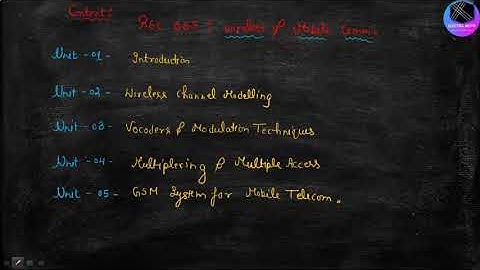 Content:
REC 085 : Wireless & Mobile Comm:
Unit - 01 - Introduction
Unit - 02 - Wireless Channel Modelling
Unit - 03 - Vocoders & Modulation Techniques
Unit - 04 - Multiplexing & Multiple Access
Unit - 05 - GSM System for Mobile Telecom.